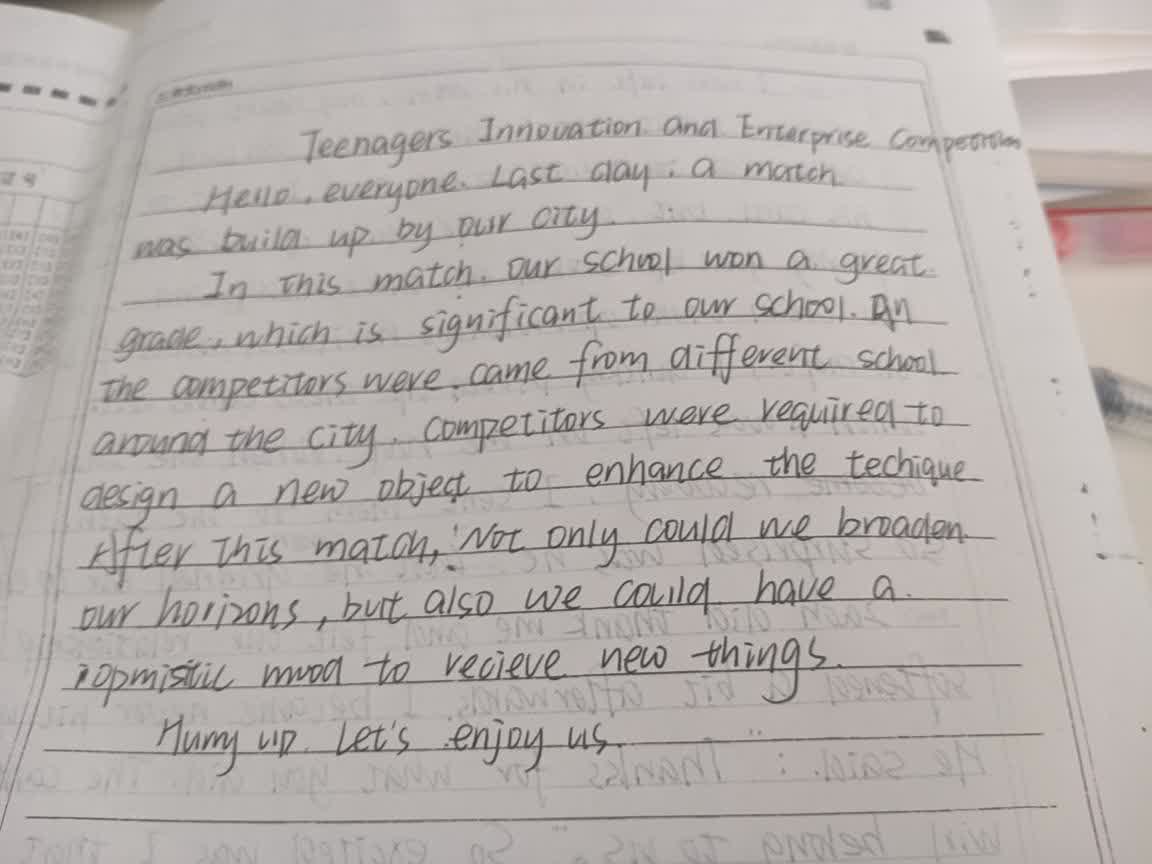 Teenagers Innovation and Enterprise Competition
Hello, everyone. Last day, a match
was build up by our city.
In this match, our school won a great
grade, which is significant to our school. An
the competitors were came from different school
around the city. Competitors were required to
design a new object to enhance the techique
After this match, Not only could we broaden
our horizons, but also we could have a
mood to recieve new things.
Hurry up. Let's enjoy us.